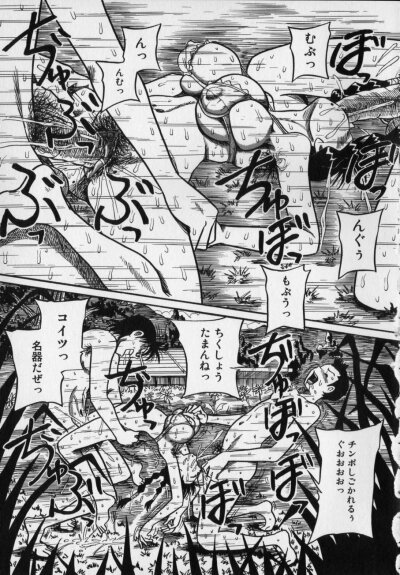 むぷっ
ぼっ
んっ
んむっ
ぢゅぶっ
ぶっ
ぼっ
ぢゅぼっ
んぐぅ
もぷうっ
ちくしょう
たまんねっ
コイツっ
名器だぜっ
ぢゅっ
ぢゅぶっ
ぢゅぼっ
ぼっ
チンポしごかれるぅ
ぐおおおおっ